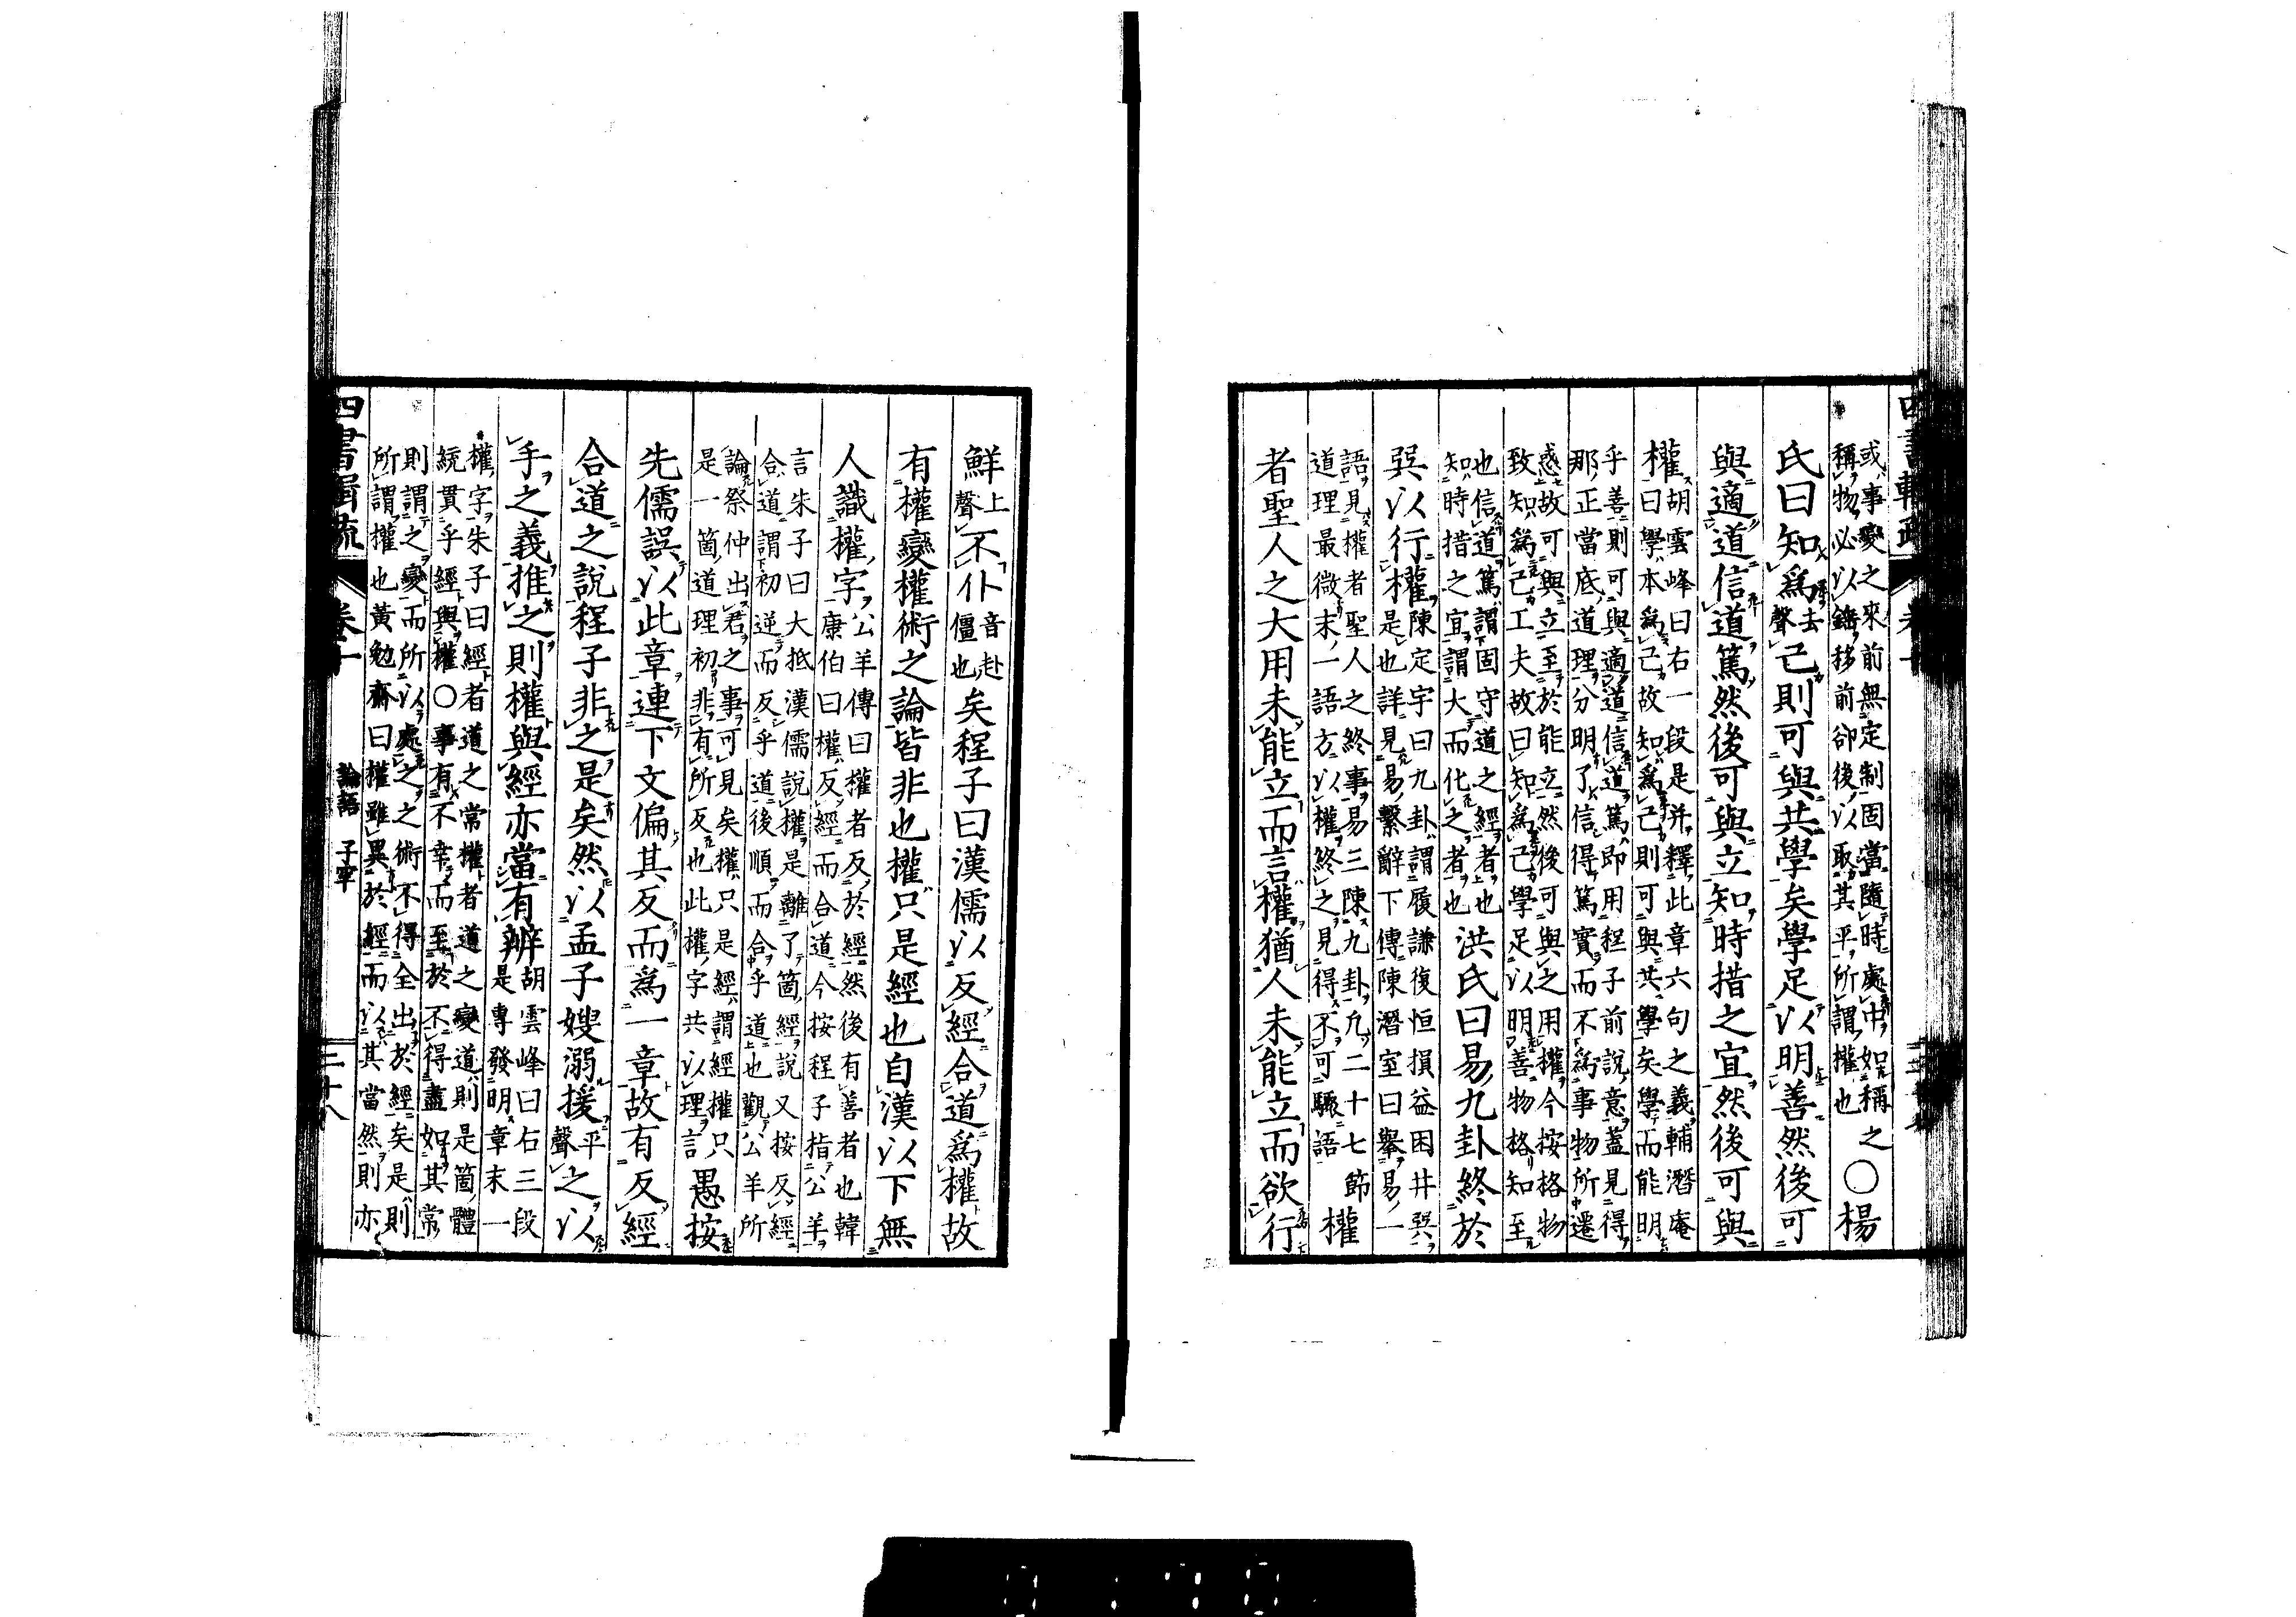 或事變之來前無定制固當隨時處中如稱之〇楊
稱物必以錘移前卻後以取其平所謂權也
氏曰知爲去聲己則可與共學矣學足以明善然後可
與適道信道篤然後可與立知時措之宜然後可與
權胡雲峰曰右一段是并釋此章六句之義輔潛庵
曰學本爲己故知爲己則可與共學矣學而能明
乎善則可與適道信道篤即用程子前說意蓋見得
那正當底道理分明了信得篤實而不爲事物所遷
惑故可與立至於能立然後可與之用權今按格物
致知爲己工夫故曰知爲己學足以明善物格知至
也信道篤謂固守道之經者也洪氏曰易九卦終於
知時措之宜謂大而化之者也
巽以行權陳定宇曰九卦謂履謙復恒損益困井巽
是也詳見易繫辭下傳陳潛室曰舉易一
語見權者聖人之終事易三陳九卦凡二十七節權
道理最微末一語方以權終之見得不可驟語
者聖人之大用未能立而言權猶人未能立而欲行
四書輯疏 卷十
鮮上聲不仆音赴僵也矣程子曰漢儒以反經合道爲權故
有權變權術之論皆非也權只是經也自漢以下無
人識權字公羊傳曰權者反於經然後有善者也韓
康伯曰權反經而合道今按程子指公羊
言朱子曰大抵漢儒說權是離了箇經說又按反經
合道謂初逆而反乎道後順而合乎道也觀公羊所
論祭仲出君之事可見矣權只是經謂經權只愚按
是一箇道理初非有所反也此權字共以理言
先儒誤以此章連下文偏其反而爲一章故有反經
合道之說程子非之是矣然以孟子嫂溺援平聲之以
手之義推之則權與經亦當有辨胡雲峰曰右三段
是專發明章末一
權字朱子曰經者道之常權者道之變道則是箇體
統貫乎經與權〇事有不幸而至於不得盡如其常
則謂之變而所以處之之術不得全出於經矣是則
所謂權也黃勉齋曰權雖異於經而以其當然則亦
四書輯疏 卷十 論語 子罕 三十八